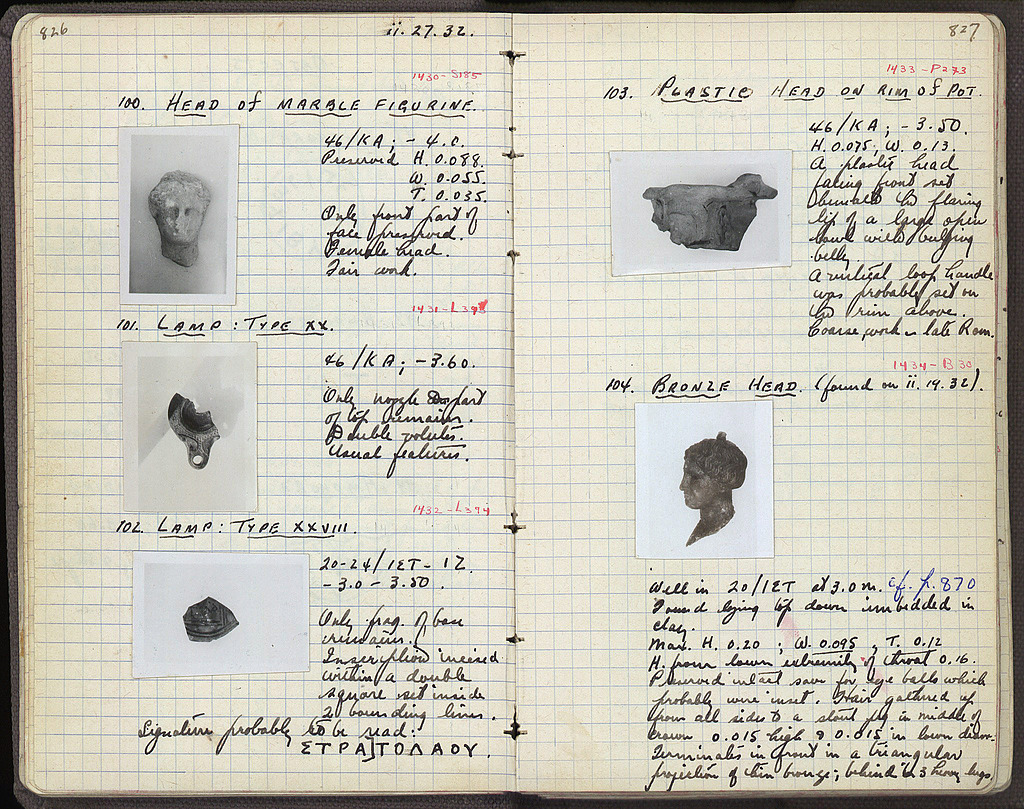 826
ii. 27. 32.
1430 - S185
100. HEAD of MARBLE FIGURINE.
46/KA; - 4.0.
Preserved H. 0.088.
W. 0.055.
T. 0.035.
Only front part of
face preserved.
Female head.
Fair work.
1431 - L393
101. LAMP: TYPE XX.
46/KA; - 3.60.
Only nozzle & part
of top remains.
Double volutes.
Usual features.
1432 - L394
102. LAMP: TYPE XXVIII.
20-24/IET - IZ
- 3.0 - 3.50.
Only frag. of base
remains.
Inscription incised
within a double
square set inside
2 bounding lines.
Signature probably to be read:
ΣΤΡΑ]ΤΟΛΑΟΥ.
827
1433 - P273
103. PLASTIC HEAD ON RIM of POT.
46/KA; - 3.50.
H. 0.075; W. 0.13.
A plastic head
facing front set
beneath the flaring
lip of a large open
bowl with bulging
belly.
A vertical loop handle
was probably set on
the rim above.
Coarse work - late Rom.
1434 - B 30
104. BRONZE HEAD. (found on ii. 19. 32).
Well in 20/IET at 3.0 m. cf. p. 870
Found lying top down imbedded in
clay.
Max. H. 0.20 ; W. 0.095 , T. 0.12
H. from lower extremity of throat 0.16.
Preserved intact save for eye balls which
probably were inset. Hair gathered up
from all sides to a stout peg in middle of
crown 0.015 high & 0.015 in lower diam.
Terminates in front in a triangular
projection of thin bronze; behind in 3 heavy lugs.